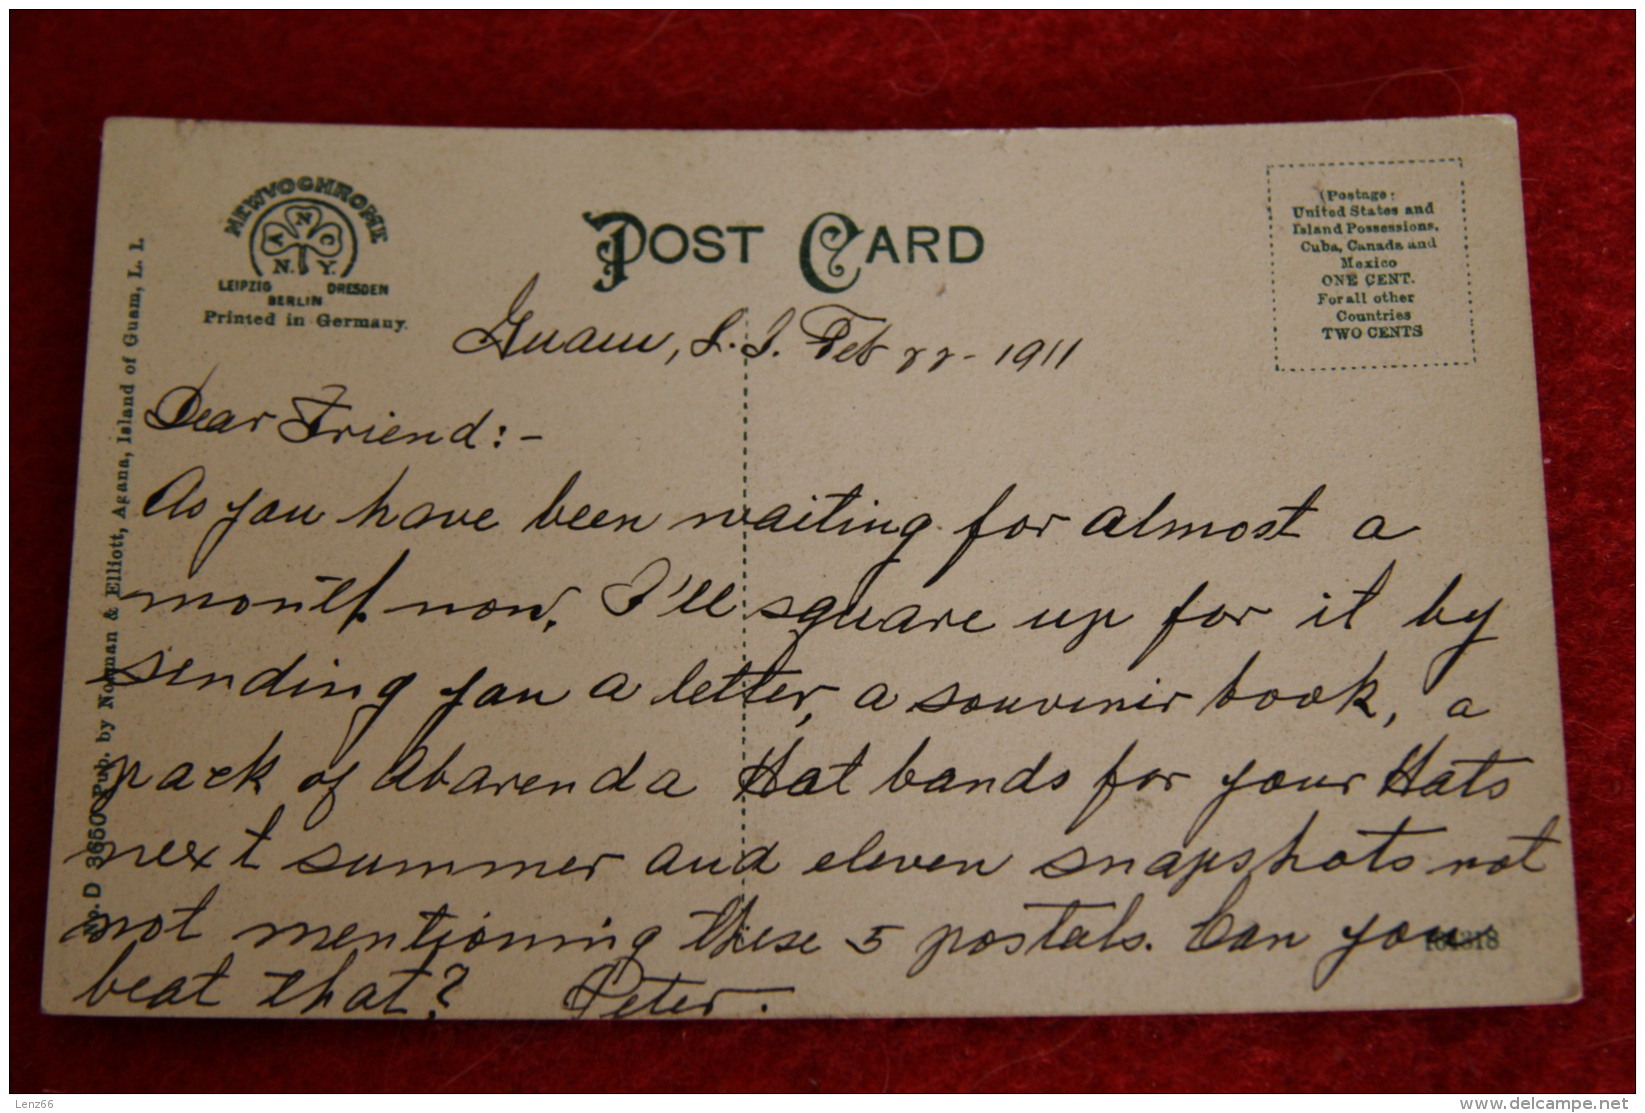 NEWVOCHROME
A N C
N. Y.
LEIPZIG DRESDEN
BERLIN
Printed in Germany.
POST CARD
(Postage:
United States and
Island Possessions,
Cuba, Canada and
Mexico
ONE CENT.
For all other
Countries
TWO CENTS
No. D 3650 Pub. by Norman & Elliott, Agana, Island of Guam, L. I.
Guam, L.I. Feb 22 - 1911
Dear Friend:-
As you have been waiting for almost a
month now, I'll square up for it by
sending you a letter, a souvenir book, a
pack of Abarenda Hat bands for your Hats
next summer and eleven snapshots not
not mentioning these 5 postals. Can you
beat that? Peter.
Lenz66
www.delcampe.net